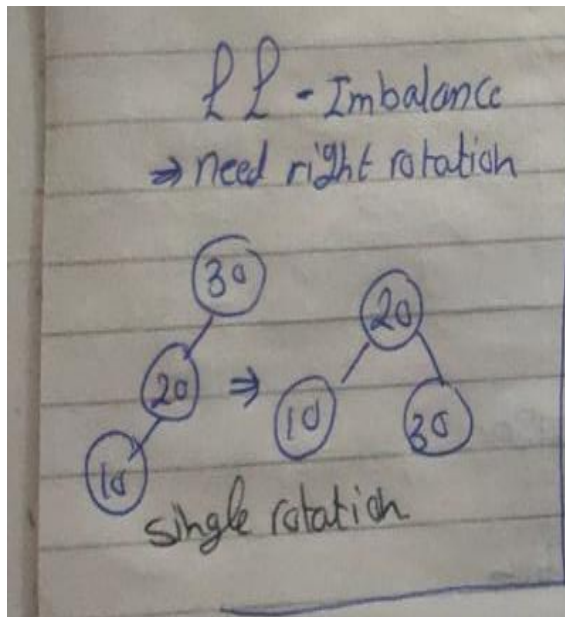 LL - Imbalance
⇒ need right rotation
30
20
20 ⇒
10
30
10
single rotation